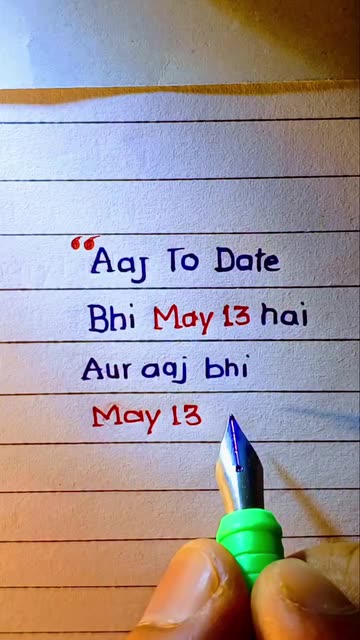 “Aaj To Date
Bhi May 13 hai
Aur aaj bhi
May 13